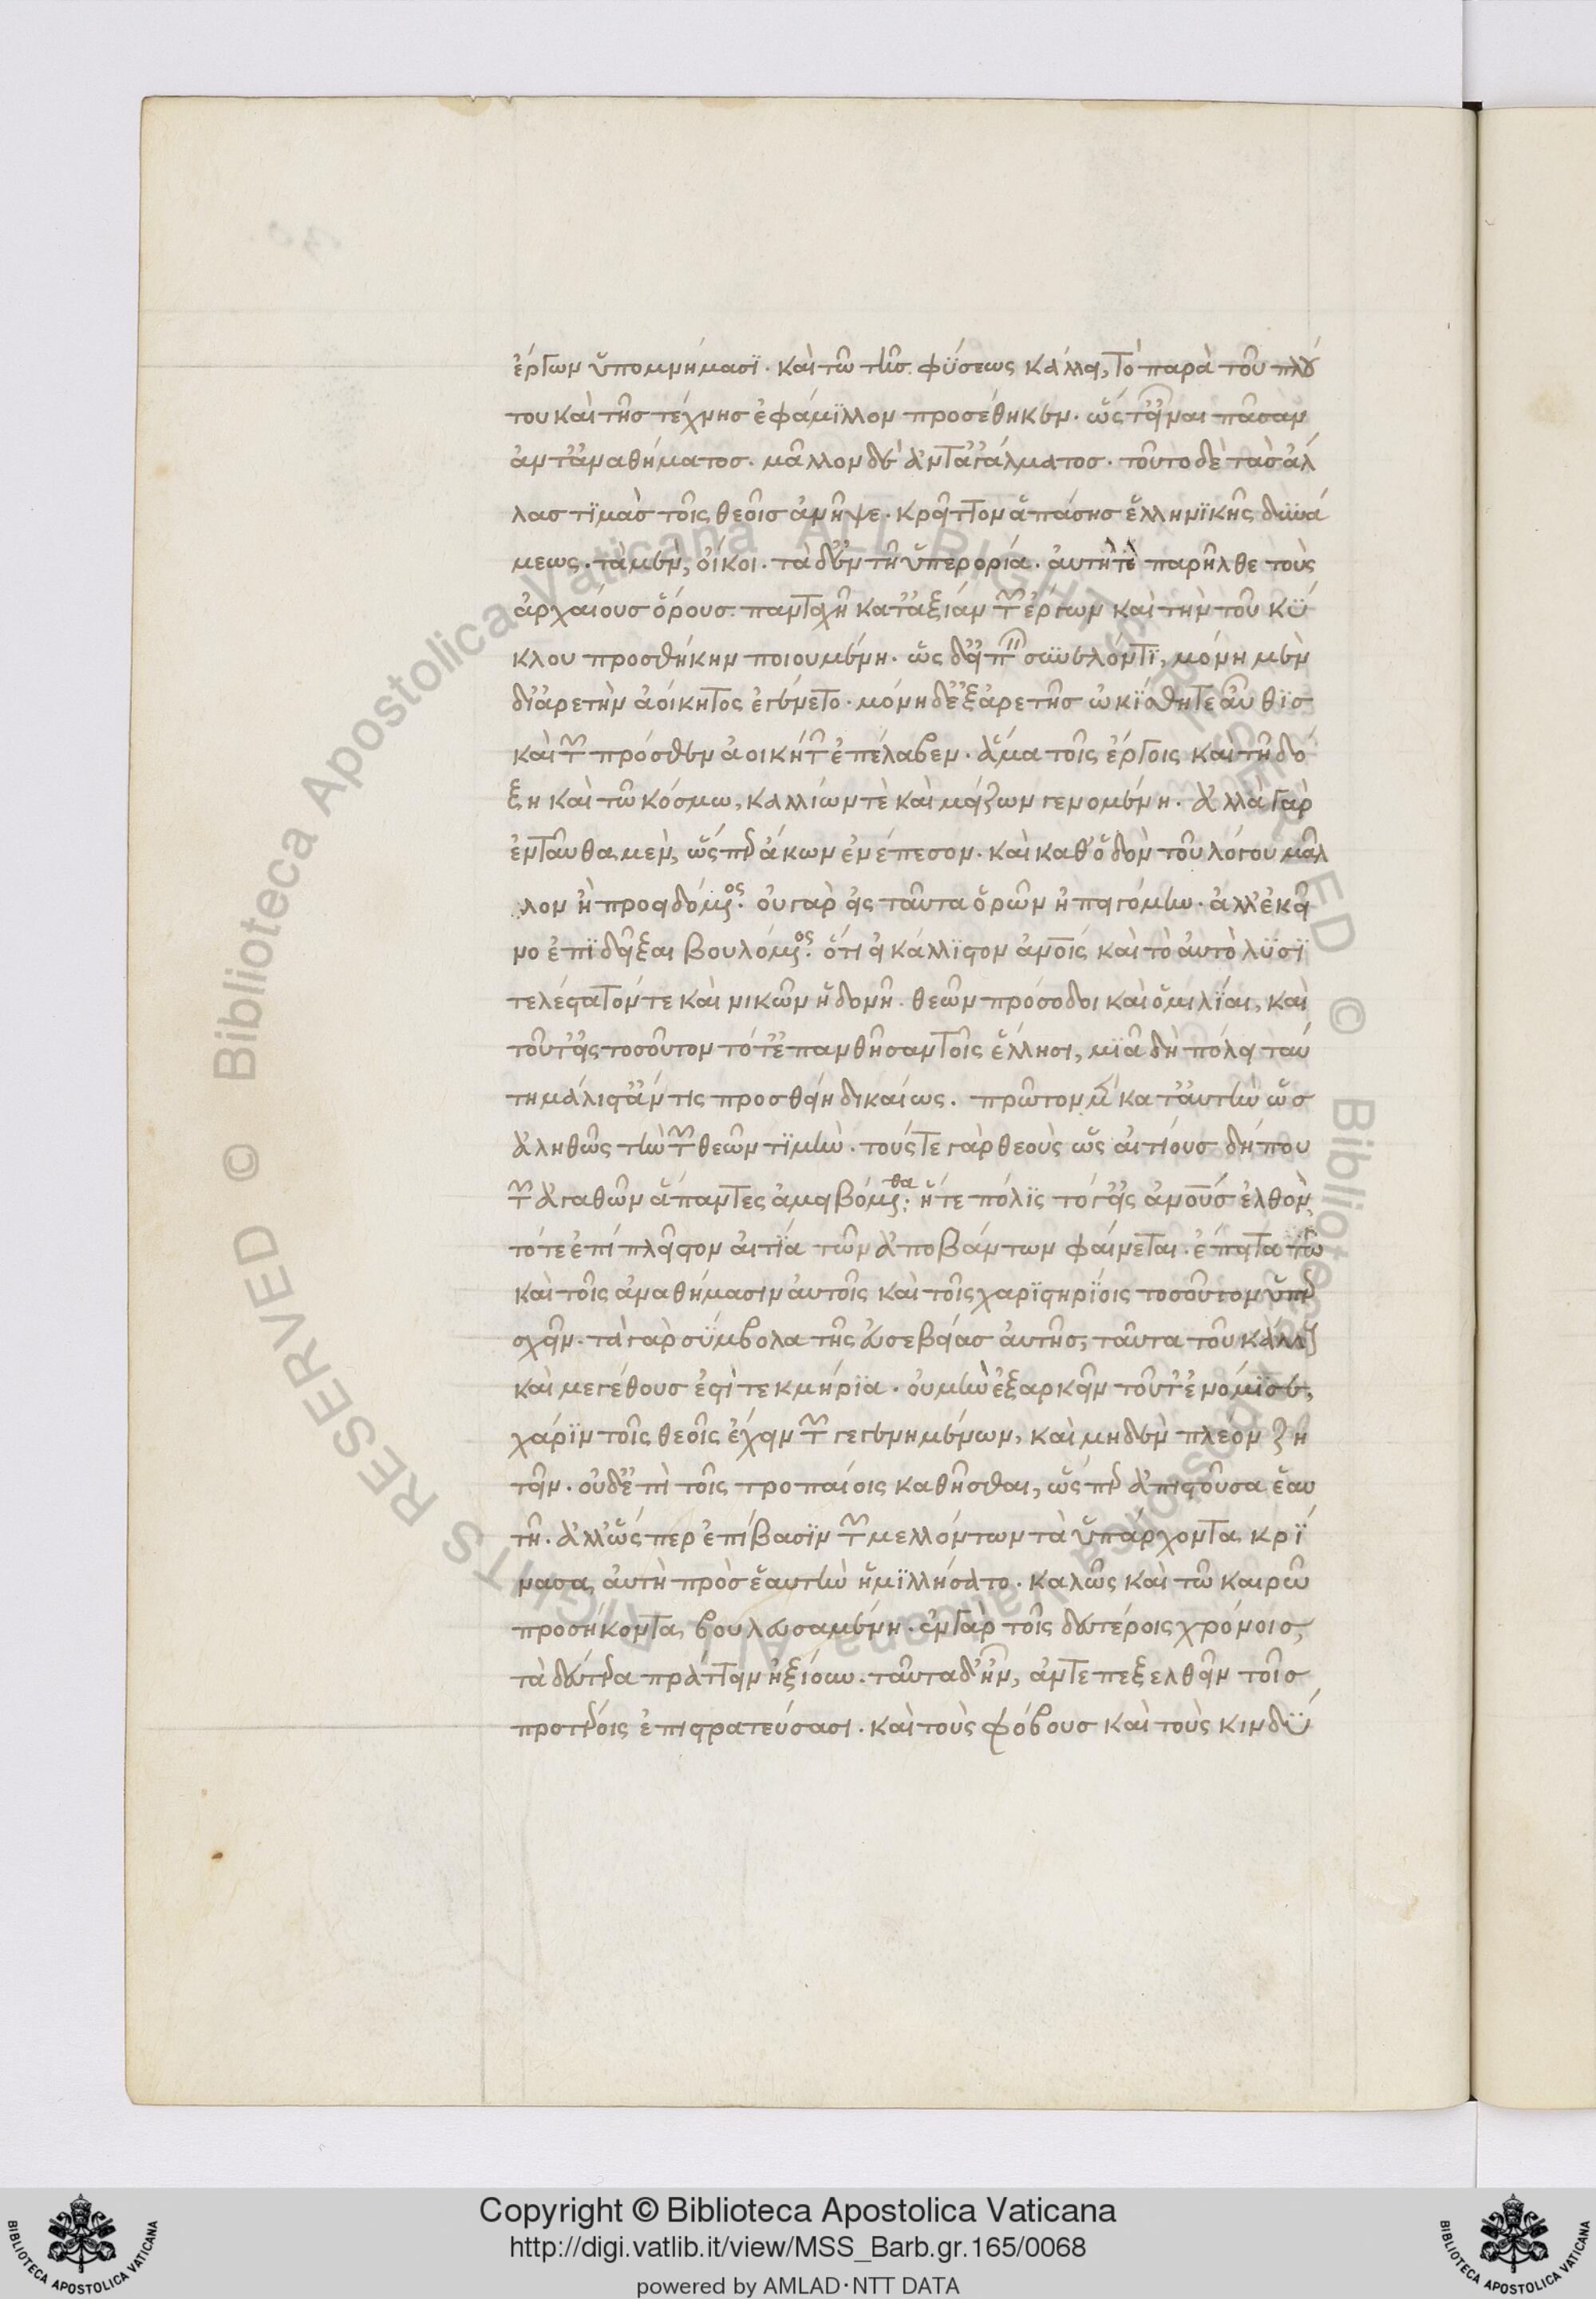 ἔργων ὑπομνήμασι. καὶ τῶ τῆς φύσεως κάλλει, τὸ παρὰ τοῦ πλού
του καὶ τῆς τέχνης ἐφάμιλλον προσέθηκεν. ὥστ' εἶναι πᾶσαν
ἀντ' ἀναθήματος. μᾶλλον δὲ ἀντ' ἀγάλματος. τοῦτο δὲ τὰς ἀλ
λας τιμὰς τοῖς θεοῖς ἀνῆψε. κρεῖττον ἁπάσης ἑλληνικῆς δυνά
μεως. τὰ μὲν, οἴκοι. τὰ δ' ἐν τῆ ὑπερορία. αὐτή τε παρῆλθε τοὺς
ἀρχαίους ὅρους. πανταχῆ κατ' ἀξίαν τῶν ἔργων καὶ τὴν τοῦ κύ
κλου προσθήκην ποιουμένη. ὡς δ' εἰπεῖν συνελόντι, μόνη μὲν
δι' ἀρετὴν ἀοίκητος ἐγένετο. μόνη δ' ἐξ ἀρετῆς ὠκίσθη τε αὖθις
καὶ τῶν πρόσθεν ἀοικήτων ἐπέλαβεν. ἅμα τοῖς ἔργοις καὶ τῆ δό
ξη καὶ τῶ κόσμω, καλλίων τὲ καὶ μείζων γενομένη. ἀλλὰ γὰρ
ἐνταῦθα μὲν, ὥσπερ ἄκων ἐνέπεσον. καὶ καθ' ὁδὸν τοῦ λόγου μᾶλ
λον ἢ προειδόμενος. οὐ γὰρ εἰς ταῦτα ὁρῶν ἠπειγόμην. ἀλλ' ἐκεῖ
νο ἐπιδεῖξαι βουλόμενος. ὅτι εἰ κάλλιστον ἀν̅ο̅ι̅ς καὶ τὸ αὐτὸ λυσι
τελέστατόν τε καὶ νικῶν ἡδονῆ. θεῶν πρόσοδοι καὶ ὁμιλίαι, καὶ
τοῦτ' εἰς τοσοῦτον τότ' ἐπανθῆσαν τοῖς ἕλλησι, μιᾶ δὴ πόλει ταύ
τη μάλιστ' ἄν τις προσθείη δικαίως. πρῶτον μὲν κατ' αὐτὴν ὡς
ἀληθῶς τὴν τῶν θεῶν τιμήν. τούς τε γὰρ θεοὺς ὡς αἰτίους δήπου
τῶν ἀγαθῶν ἅπαντες ἀμειβόμεθα. ἥ τε πόλις τό γ' εἰς ἀν̅ο̅υ̅ς ἐλθὸν
τότε ἐπὶ πλεῖστον αἰτία τῶν ἀποβάντων φαίνεται. ἔπειτα τῶ
καὶ τοῖς ἀναθήμασιν αὐτοῖς καὶ τοῖς χαριστηρίοις τοσοῦτον ὑπερ
σχεῖν. τὰ γὰρ σύμβολα τῆς εὐσεβείας αὐτῆς, ταῦτα τοῦ κάλλους
καὶ μεγέθους ἐστὶ τεκμήρια. οὐ μὴν ἐξαρκεῖν τοῦτ' ἐνόμισε,
χάριν τοῖς θεοῖς ἔχειν τῶν γεγενημένων, καὶ μηδὲν πλέον ζη
τεῖν. οὐδ' ἐπὶ τοῖς τροπαίοις καθῆσθαι, ὥσπερ ἀπιστοῦσα ἑαυ
τῆ. ἀλλ' ὥσπερ ἐπίβασιν τῶν μελλόντων τὰ ὑπάρχοντα κρί
νασα, αὐτὴ πρὸς ἑαυτὴν ἡμιλλήσατο. καλῶς καὶ τῶ καιρῶ
προσήκοντα, βουλευσαμένη. ἐν γὰρ τοῖς δευτέροις χρόνοις,
τὰ δεύτερα πράττειν ἠξίου. ταῦτα δ' ἦν, ἀντεπεξελθεῖν τοῖς
προτέροις ἐπιστρατεύσασι. καὶ τοὺς φόβους καὶ τοὺς κινδύ
Copyright © Biblioteca Apostolica Vaticana
http://digi.vatlib.it/view/MSS_Barb.gr.165/0068
powered by AMLAD·NTT DATA